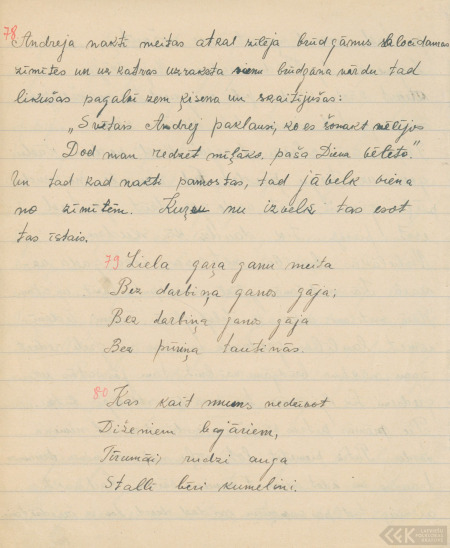 78
Andreja nakti meitas atkal zīlēja brūdgānus salocīdamas
zīmītes un uz katras uzraksta vienu brūdgāna vārdu tad
likušas pagalvī zem ķisena un skaitījušas:
„Svētais Andrej paklausi, ko es šonakt vēlējos
Dod man redzēt mīļāko, paša Dieva bēlēto."
Un tad kad nakti pamostas, tad jāvelk viena
no zīmītēm. Kuŗu nu izvelk tas esot
tas īstais.
79 Liela gaŗa ganu meita
Bez darbiņa ganos gāja;
Bez darbiņa ganos gāja
Bez pūriņa tautiņās.
80 Kas kait mums nedzīvot
Diženiem bajāriem,
Tīrumāi rudzi auga
Stallī bēri kumeliņi.